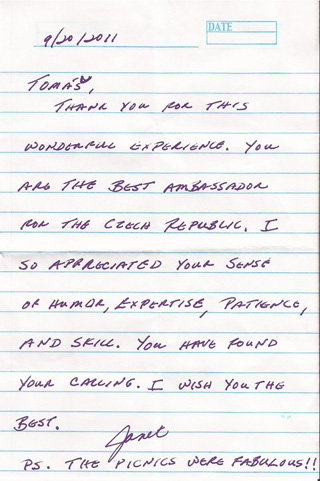 DATE
9/20/2011
TOMÁŠ,
THANK YOU FOR THIS
WONDERFUL EXPERIENCE. YOU
ARE THE BEST AMBASSADOR
FOR THE CZECH REPUBLIC. I
SO APPRECIATED YOUR SENSE
OF HUMOR, EXPERTISE, PATIENCE,
AND SKILL. YOU HAVE FOUND
YOUR CALLING. I WISH YOU THE
BEST.
Janet
PS. THE PICNICS WERE FABULOUS!!